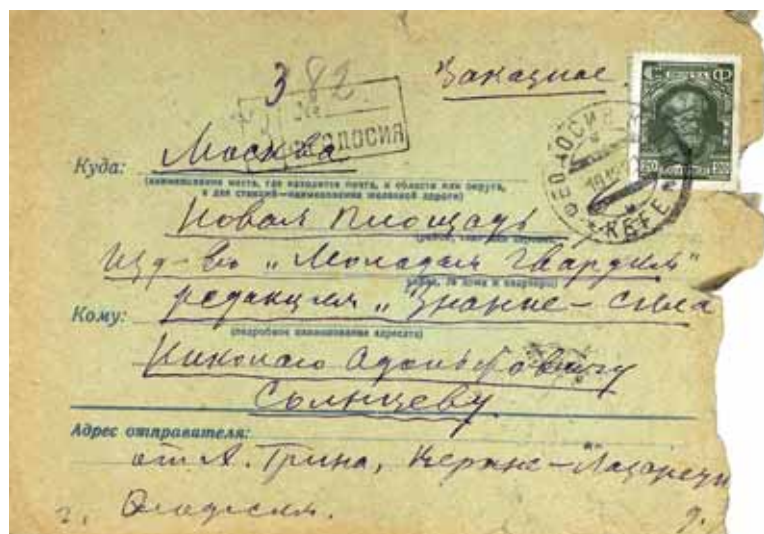 382 Заказное.
№
ФЕОДОСИЯ
ФЕОДОСИЯ
20 20
Куда: Москва
(наименование места, где находится почта, и области или округа,
а для станций—наименование железной дороги)
Новая Площадь
Изд-во „Молодая Гвардия"
редакция „Знание-сила
Кому:
(подробное наименование адресата)
Николаю Адольфовичу
Солнцеву
Адрес отправителя:
от А. Грина,
г. Феодосия.